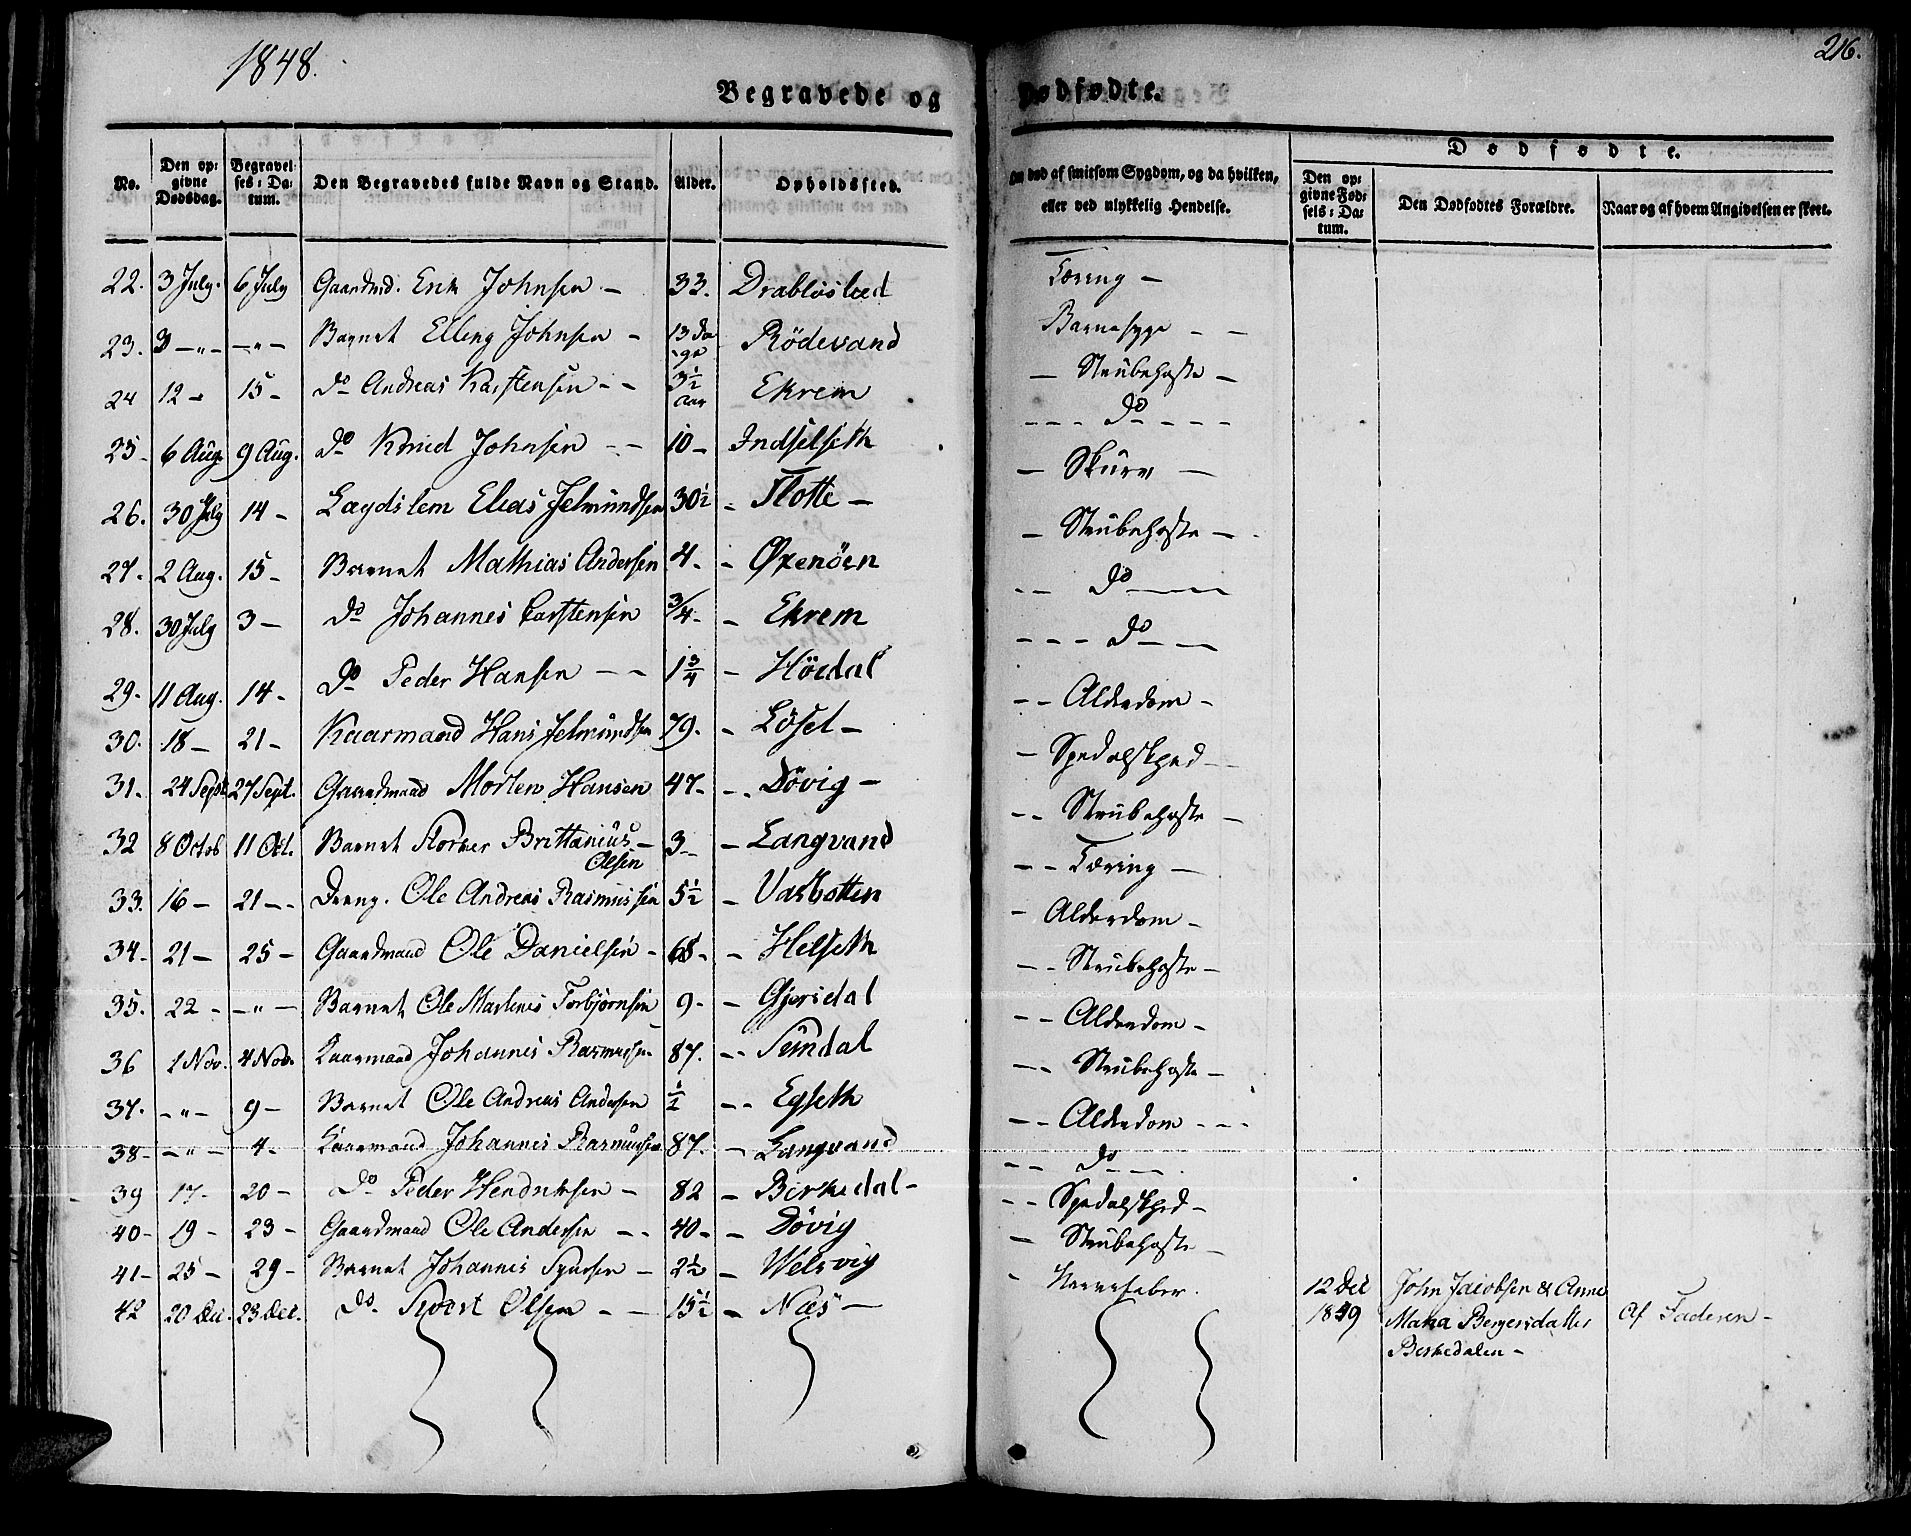 1848.
216.
Begravede og Dødfødte.
No.
Den op-
givne
Dødsdag.
Begravel-
ses-Da-
tum.
Den Begravedes fulde Navn og Stand.
Alder.
Opholdssted.
Om død af smitsom Sygdom, og da hvilken,
eller ved ulykkelig Hendelse.
Dødfødte.
Den op-
givne Fød-
sels-Da-
tum.
Den Dødfødtes Forældre.
Naar og af hvem Angivelsen er skeet.
22. 3 July. 6 July Gaardmd. Erik Johnsen. — 33. Drabløsled
23. 3 —"— —"— Barnet Elling Johnsen — 13 Da-ge Rödevand
24 12 — 15 — Do Andreas Karstensen — — 3½ aar Ekrem
25 — 6 Aug. 9 Aug. Do Knud Johnsen — — 10 — Indselseth
26. 30 July 14 — Lægdslem Elias Jelmundsen 30½ — Flotte —
27. 2 Aug. 15 — Barnet Mathias Andersen 4. — Øxenöen
28. 30 July 3 — Do Johannes Carstensen 3/4 — Ekrem
29. 11 Aug. 14 — Do Peder Hansen — — 1¾ — Höedal
30. 18 — 21 — Kaarmand Hans Jelmundsen 79. — Lösel —
31. 24 Sept. 27 Sept. Gaardmand Morten Hansen 47 — Dövig —
32 8 Octob 11 Oct. Barnet Brittanius — 3 — Langvand
Olsen
33. 16 — 21 — Dreng. Ole Andreas Rasmussen 5½ — Vasbotten
34. 21 — 25 — Gaardmand Ole Danielsen — 68 — Helseth
35. 22 — —"— Barnet Ole Martines Torbjörnsen 9 — Gjersdal
36 1 Nov. 4 Nov. Kaarmand Johannes Rasmussen 87. —
37. —"— 9 — Barnet Ole Andreas Andersen ½ — Egseth
38 — —"— 4. Kaarmand Johannes Rasmussen 87. — Langvand
39 17 — 20 — Do Peder Hendriksen — 82 — Birkedal —
40 — 19 — 23 — Gaardmand Ole Andersen — 40 — Dövig
41 — 25 — 29 — Barnet Johannes — 2½ — Welsvig
42 20 Dec. 23 Dec. Do. Sivert Olsen — — 15½ — Næs —
Tæring —
Barnesyge — —
— Strubehoste —
— — — Do — — — —
— Skurv —
— Strubehoste —
— — Do — — —
— — — Do — —
— — Alderdom —
— Spedalskhed —
— — Strubehoste —
— — Tæring —
— Alderdom —
— — Strubehoste —
— — Alderdom —
— — Strubehoste —
— — Alderdom — — —
— — Do — —
— — Spedalskhed —
— Strubehoste —
— Nervefeber.
12 Dec 1849
John Jacobsen & Anne
Maria Bergersdatter
Birkedalen —
Af Faderen —